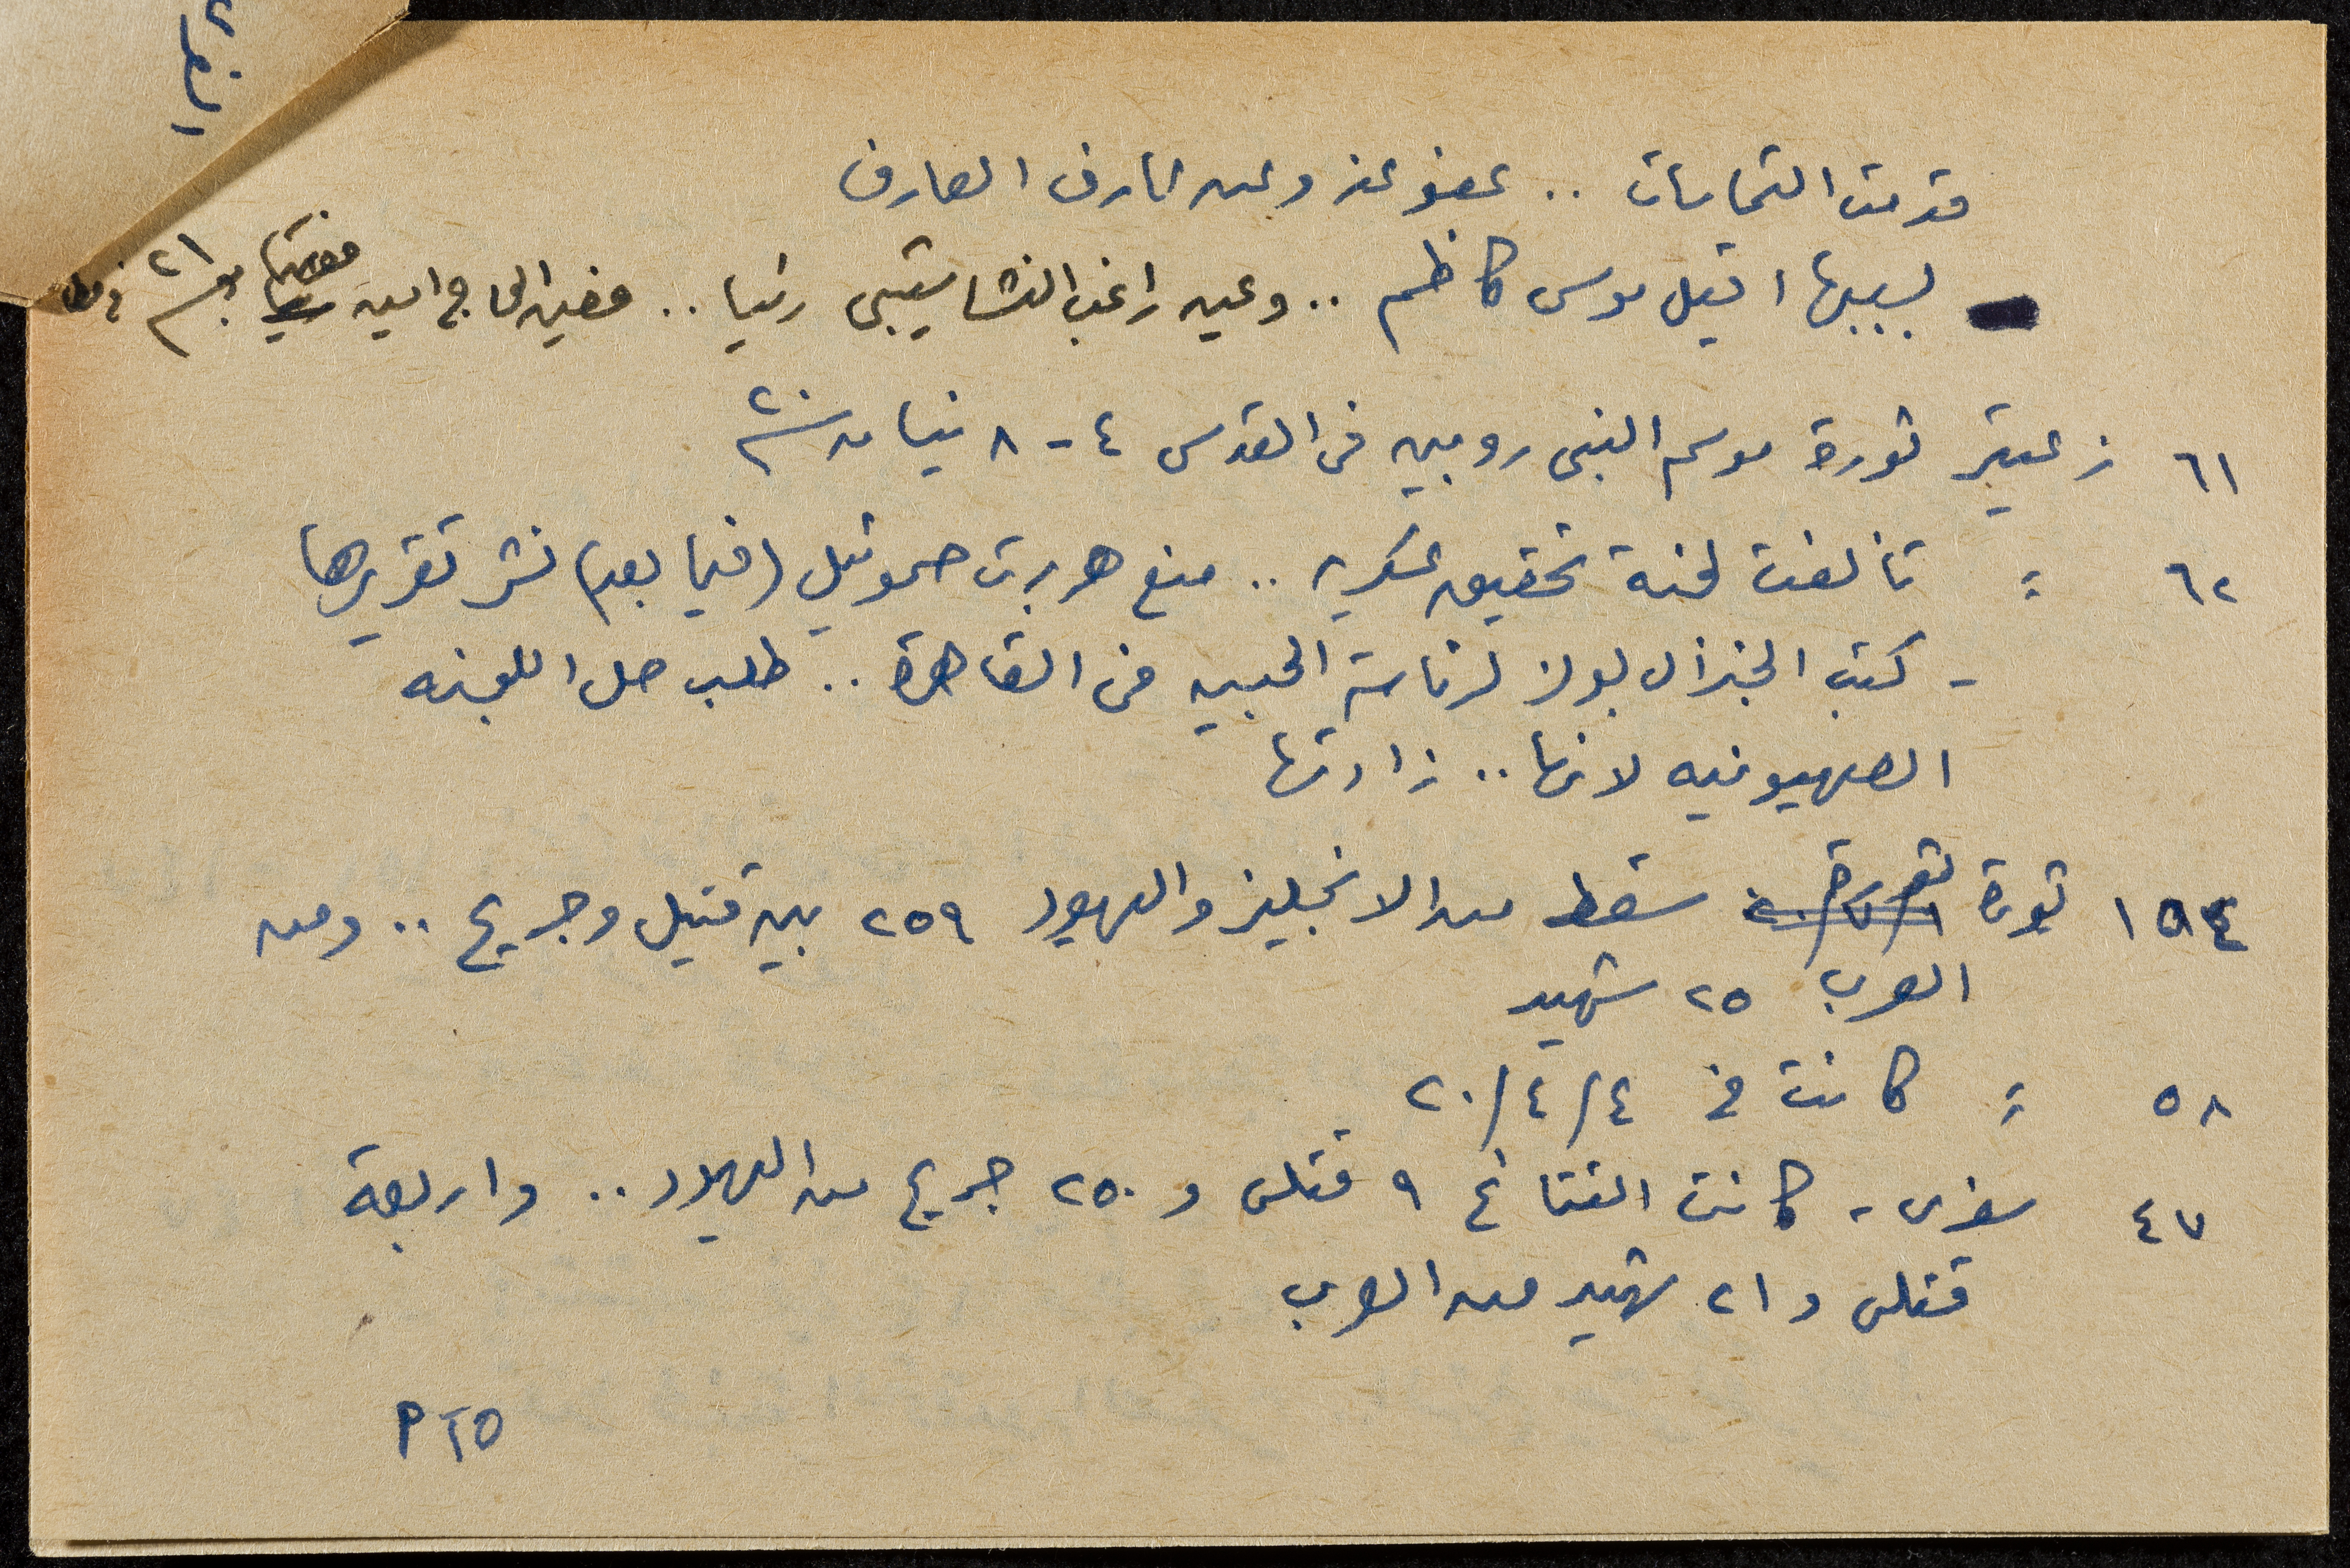 قدمت التماسات .. عفو عنه وعن عارف العارف
بسببها اقيل موسى كاظم .. وعين راغب النشاشيبي رئيسا .. فعين الحاج امين مفتيا ٢١ في
٦١ زعيتر ثورة موسم النبي روبين في القدس ٤ - ٨ نيسان ٢٠
٦٢ = تألفت لجنة تحقيق عسكريه .. منع هربرت صموئيل (فيما بعد) نشر تقريرها
- كتب الجنرال بولز لرئاسة الجيش في القاهرة .. طلب حل اللجنه
الصهيونيه لانها .. زادتها
١٥٤ ثورة سقط من الانجليز واليهود ٢٥٩ بين قتيل وجريح .. ومن
العرب ٢٥ شهيد
٥٨ = كانت في ٤/٤/٢٠
٤٧ سفري - كانت النتائج ٩ قتلى و ٢٥٠ جريح من اليهود .. واربعة
قتلى و ٢١ شهيد من العرب
PTO